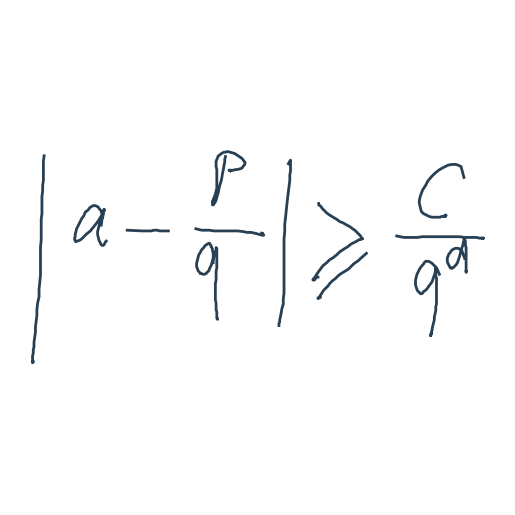 \left| a - \frac{p}{q} \right| \geqslant \frac{C}{q^{q}}